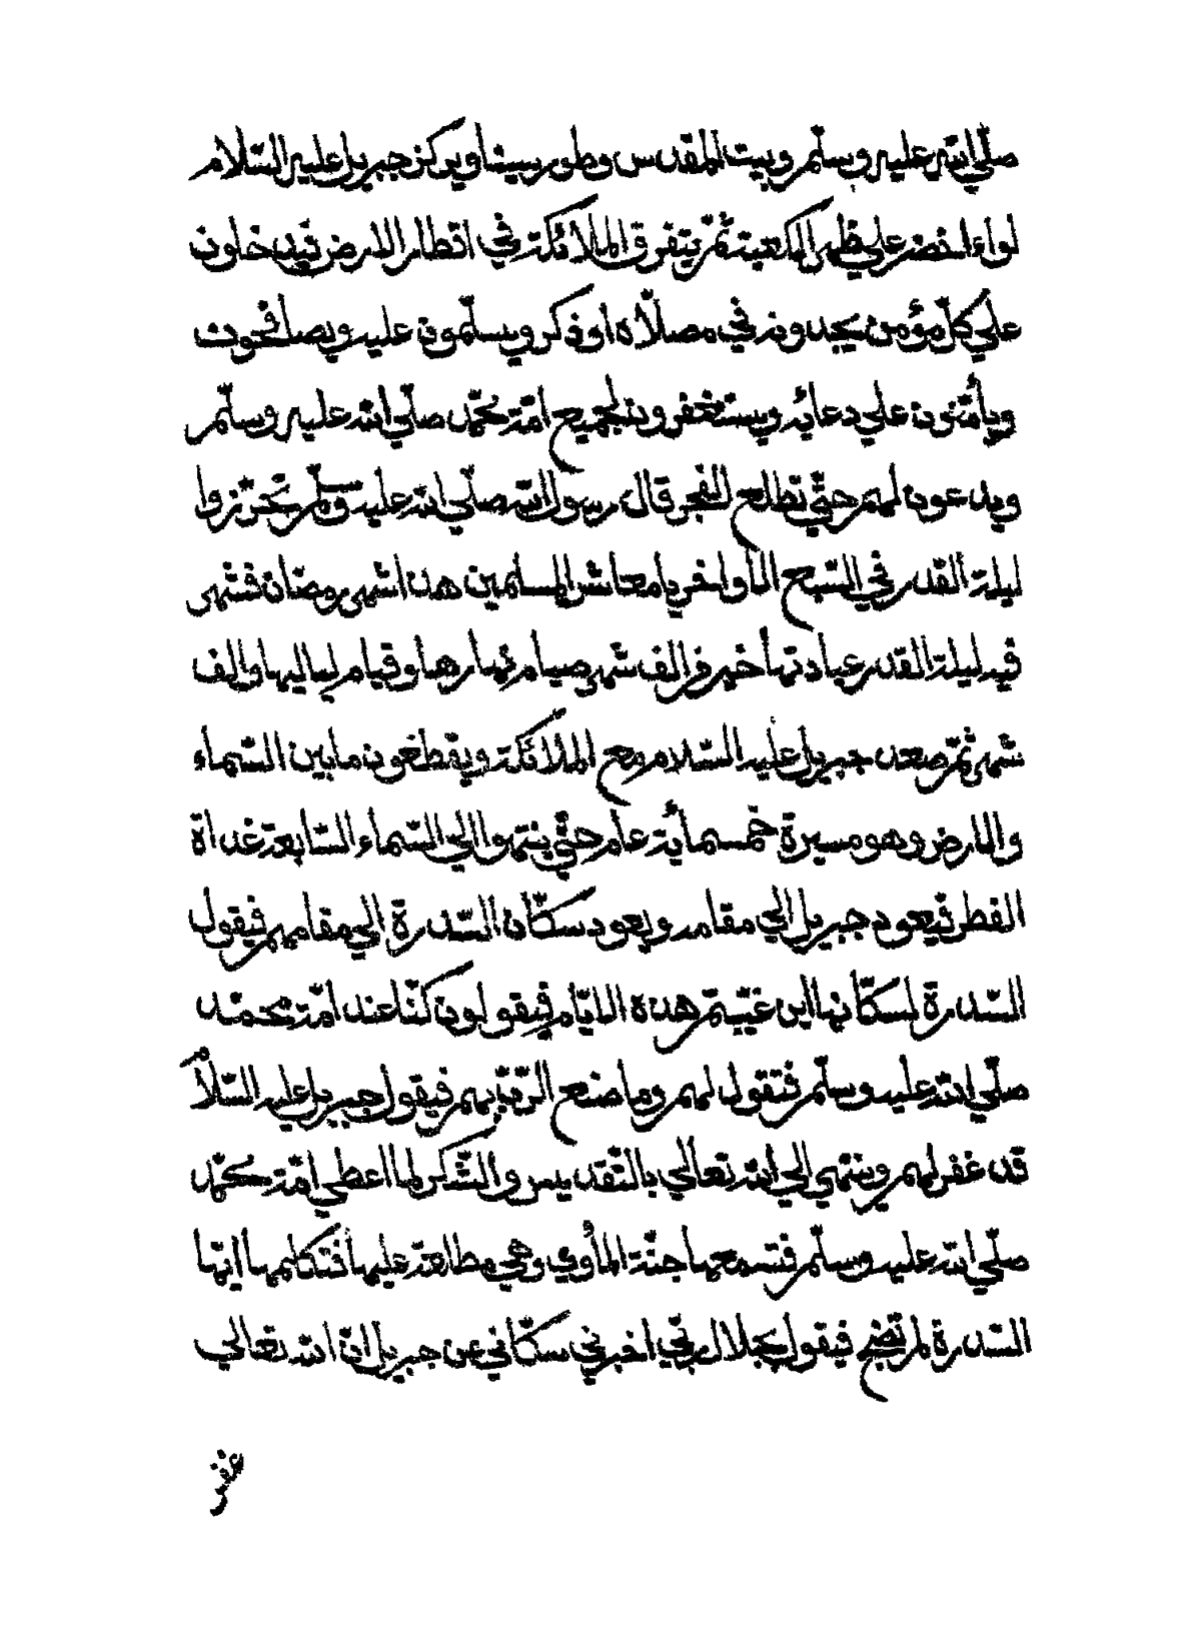 صلّي الله عليه وسلّم وبيت المقدس وطور سيناويركز جبريل عليه السّلام
لواء اخضر علي ظهر الكعبة ثمّ يتفرق الملائكة في اقطار الارض فيدخلون
علي كلّ مؤمن يجدونه في مصلّاه اوذكر ويسلّمون عليه ويصافحون
ويأمّنون علي دعائه ويستغفرون لجميع امّة محمّد صلّي الله عليه وسلّم
ويدعون لهم حتّي تطلع الفجر قال رسول الله صلّي الله عليه وسلّم تحرّزوا
ليلة القدر في السّبع الأواخر يامعاشر المسلمين هذا شهر رمضان فشهر
فيه ليلة القدر عبادتها خير من الف شهر صيام نهارها وقيام لياليها والف
شهر ثمّ صعد جبريل عليه السّلام مع الملائكة ويقطعون مابين السّماء
والارض وهو مسيرة خمسمأية عام حتّي ينتهوا الي السّماء السّابعة غداة
الفطر فيعود جبريل الي مقامه ويعود سكّان السّدرة الي مقامهم فيقول
السّدرة لسكّانها اين غيبتم هذه الايّام فيقولون كنّا عند امّة محمّد
صلّي الله عليه وسلّم فتقول لهم وما صنع الرّبّ بهم فيقول جبريل عليه السّلام
قد غفر لهم وينتهي الي الله تعالي بالتّقديس والشّكر لما اعطي امّة محمّد
صلّي الله عليه وسلّم فتسمعها جنّة المأوي وهي مطالعة عليها فتكلمها ايّتها
السّدرة لم تضج فيقول بجلال ربّي اخبرني سكّاني عن جبريل انّ الله تعالي
غفر